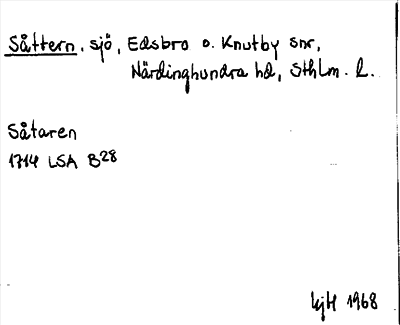 Såttern, sjö, Edsbro o. Knutby snr,
Närdinghundra hd, Sthlm. l.
Såtaren
1714 LSA B28
kjH 1968